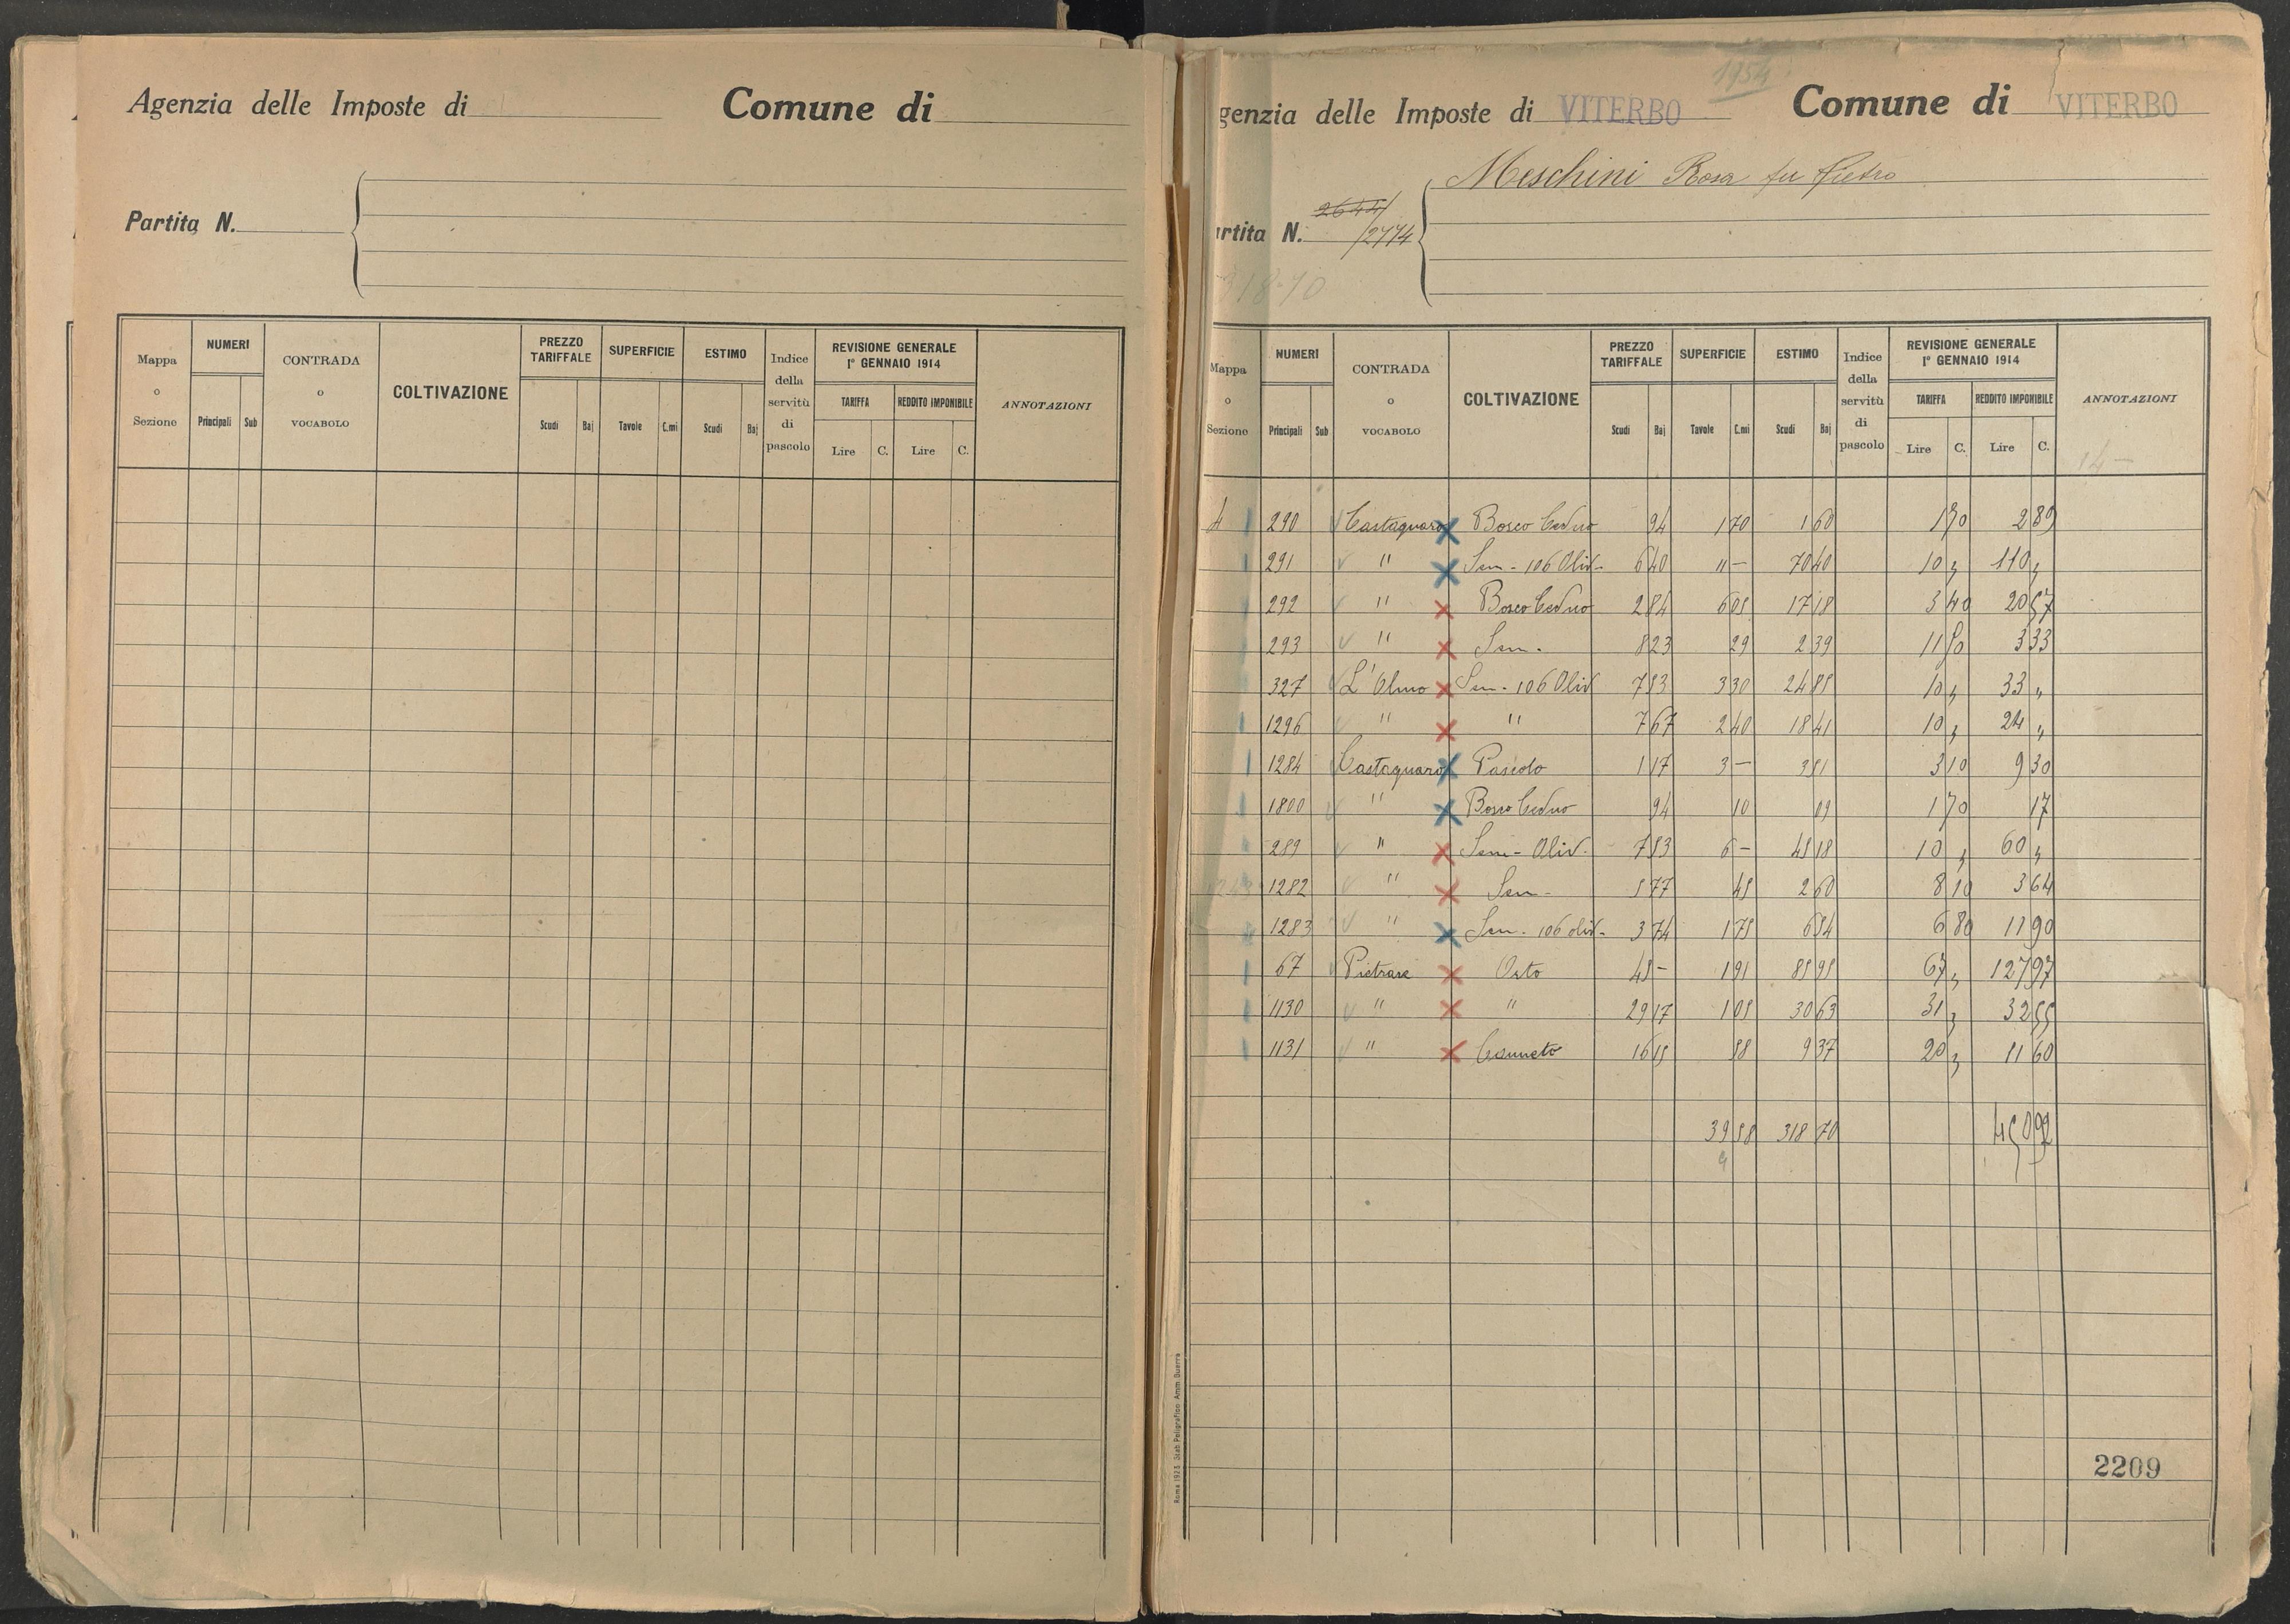 Agenzia delle Imposte di
Comune di
Partita N.
Mappa o Sezione
NUMERI
Principali Sub
CONTRADA o VOCABOLO
COLTIVAZIONE
PREZZO TARIFFALE
Scudi Baj
SUPERFICIE
Tavole C.mi
ESTIMO
Scudi Baj
Indice della servitù di pascolo
REVISIONE GENERALE
1° GENNAIO 1914
TARIFFA
Lire C.
REDDITO IMPONIBILE
Lire C.
ANNOTAZIONI
1954
genzia delle Imposte di VITERBO
Comune di VITERBO
Meschini Rosa fu Pietro
artita N. 2644/
/2774
318-70
Mappa o Sezione
NUMERI
Principali Sub
CONTRADA o VOCABOLO
COLTIVAZIONE
PREZZO TARIFFALE
Scudi Baj
SUPERFICIE
Tavole C.mi
ESTIMO
Scudi Baj
Indice della servitù di pascolo
REVISIONE GENERALE
1° GENNAIO 1914
TARIFFA
Lire C.
REDDITO IMPONIBILE
Lire C.
ANNOTAZIONI
14 —
4 290 Castagnaro Bosco Ceduo 94 1 70 1 60 1 70 2 89
291 " Sem - 106 Oliv - 6 40 11 — 70 40 10 , 110 ,
292 " Bosco Ceduo 2 84 6 05 17 18 3 40 20 57
293 " Sem - 8 23 29 2 39 11 50 3 33
327 L'Olmo Sem - 106 Oliv 7 53 3 30 24 85 10 , 33 "
1296 " " 7 67 2 40 18 41 10 , 24 "
1284 Castagnaro Pascolo 1 17 3 — 3 51 3 10 9 30
1800 " Bosco Ceduo 94 10 09 1 70 17
289 " Sem - Oliv. 7 53 6 — 45 18 10 , 60 ,
1282 " Sem - 5 77 45 2 60 8 10 3 64
1283 " Sem - 106 oliv - 3 74 1 75 6 54 6 80 11 90
67 Pietrare Orto 45 — 1 91 85 95 67 , 127 97
1130 " " 29 17 1 05 30 63 31 , 32 55
1131 " Canneto 16 15 58 9 37 20 , 11 60
39 58 318 70 450 92
2209
Roma 1923. Stab. Poligrafico Amm. Guerra